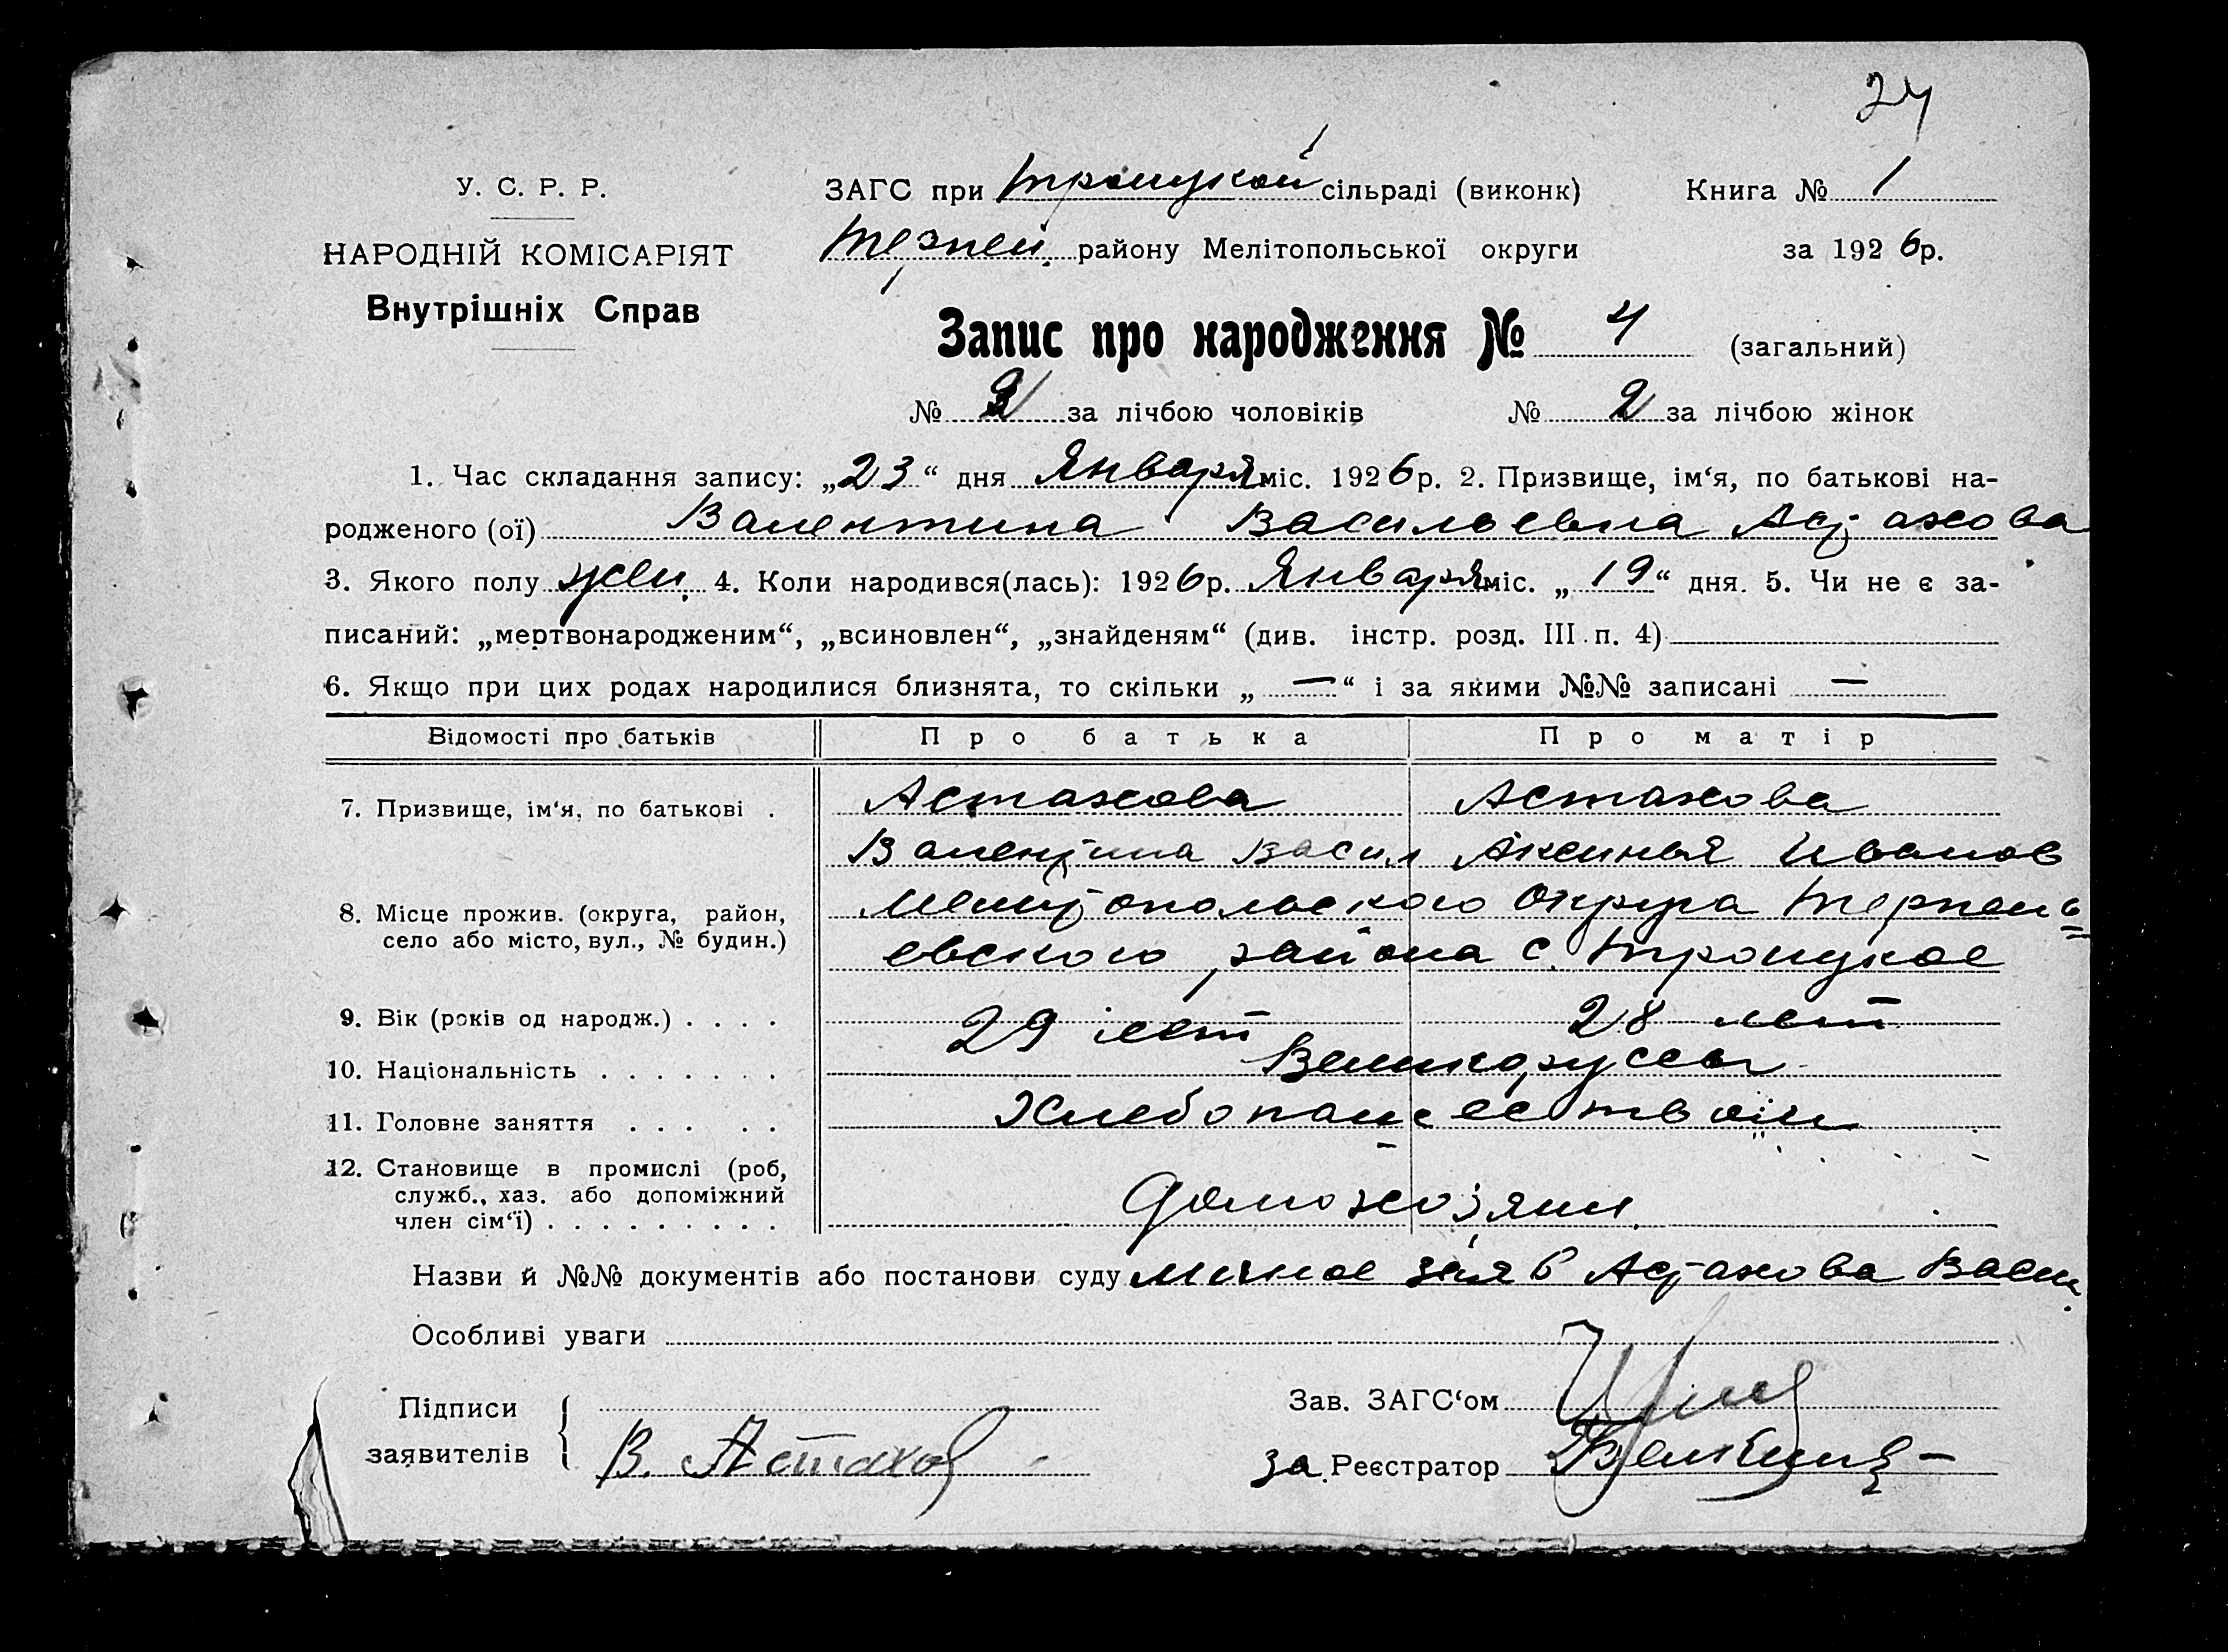 24
У. С. Р. Р.
НАРОДНІЙ КОМІСАРІЯТ
Внутрішніх Справ
ЗАГС при Троицкой сільраді (виконк)
Терпен. району Мелітопольської округи
Книга № 1
за 1926р.
Запис про народження № 4 (загальний)
№ за лічбою чоловіків № 2 за лічбою жінок
1. Час складання запису: „23“ дня Января міс. 1926р. 2. Призвище, ім‘я, по батькові на-
родженого (ої) Валентина Васильевна Астахова
3. Якого полу жен. 4. Коли народився(лась): 1926р. Января міс. „19“ дня. 5. Чи не є за-
писаний: „мертвонародженим“, „всиновлен“, „знайденям“ (див. інстр. розд. III п. 4)
6. Якщо при цих родах народилися близнята, то скільки „—“ і за якими №№ записані —
Відомості про батьків Про батька Про матір
7. Призвище, ім‘я, по батькові . Астахова Астахова
Валентина Васил Аксинья Иванов
8. Місце прожив. (округа, район, Мелитопольского Округа Терпень
село або місто, вул., № будин.) евского района с. Троицкое
9. Вік (років од народж.) . . . . 29 лет 28 лет
10. Національність . . . . . . . Великоруссы
11. Головне заняття . . . . . Хлебопашеством
12. Становище в промислі (роб,
служб., хаз. або допоміжний
член сім‘ї) . . . . . . . . . Домохозяин.
Назви й №№ документів або постанови суду Личное заяв Астахова Васил.
Особливі уваги
Підписи
заявителів В. Астахов
Зав. ЗАГС‘ом
За Реєстратор